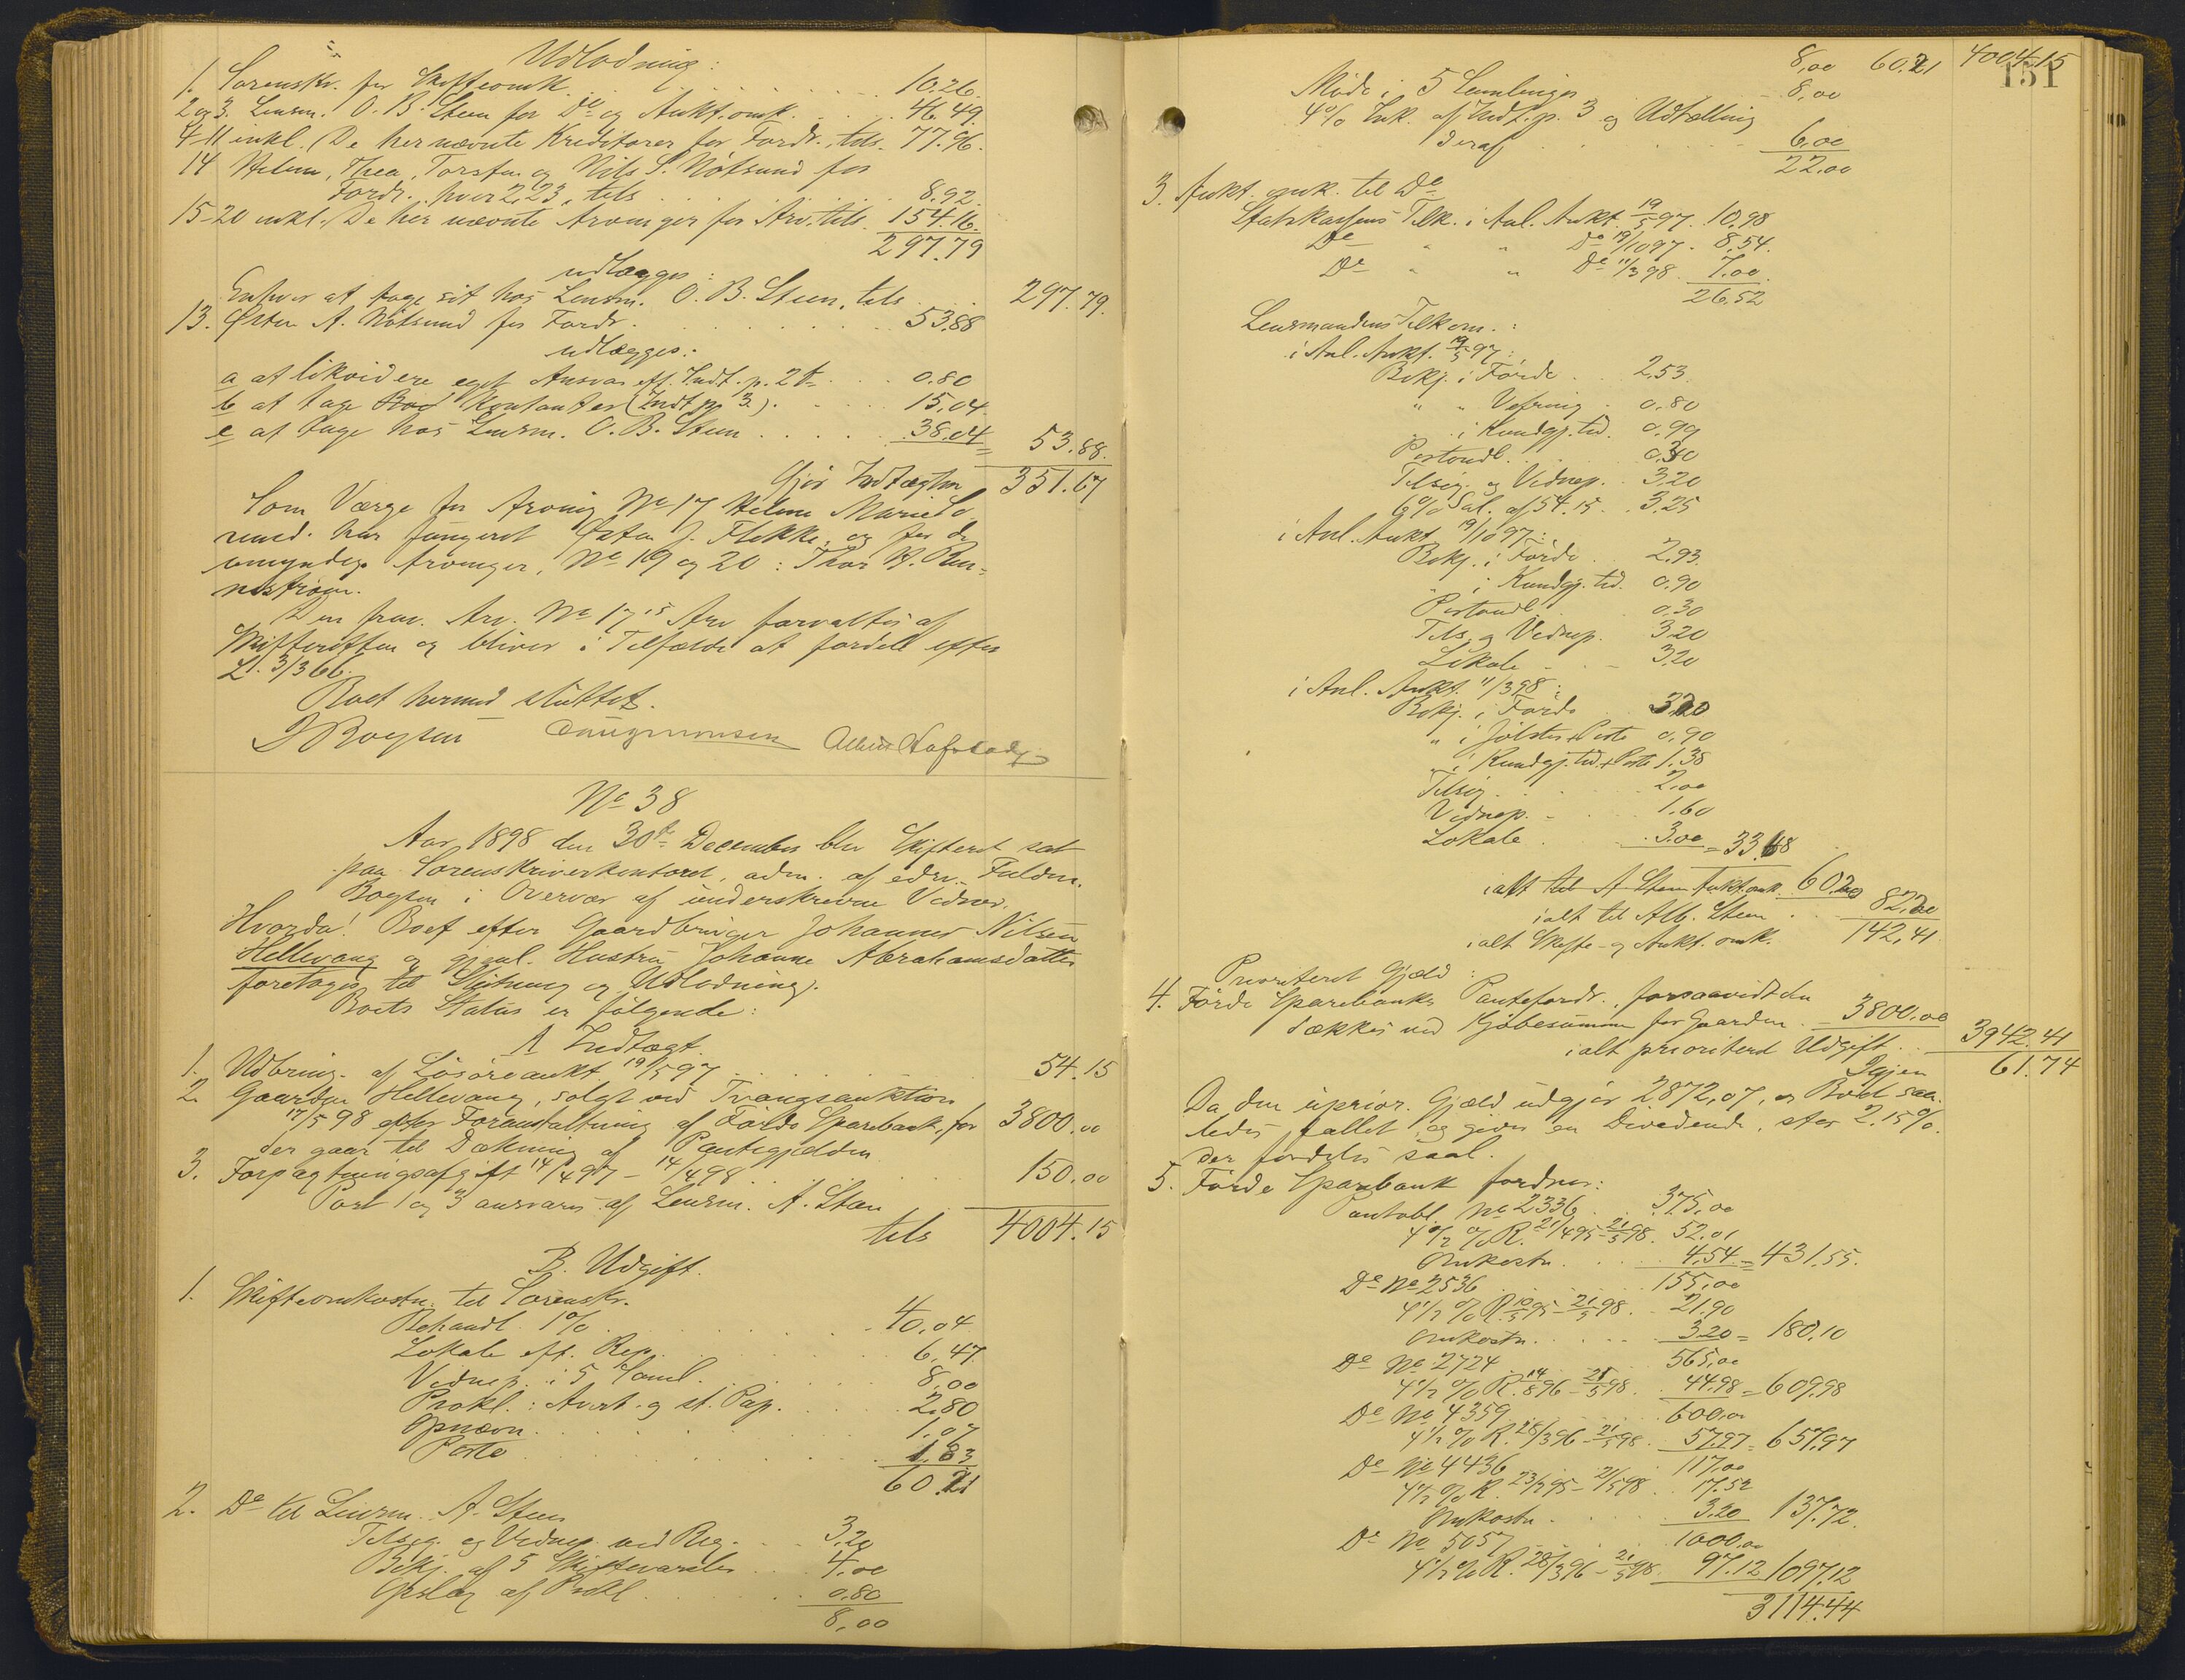 Udlodning:
1. Sorenskr. for Skifteomk. 10.26.
2 og 3. Lensm. O. B. Steen for Do og Aukt.omk. 46.49.
4-11 inkl. De her nævnte Kreditorer for Fordr., tils. 77.96.
14 Helene, Thea, Torsten og Nils S. Nötsund for
Fordr., hver 2,23, tils 8.92.
15-20 inkl. De her nævnte Arvinger for Arv, tils. 154.16.
297.79
udlægges:
Enhver at tage sit hos Lensm. O. B. Steen, tils 297.79.
13. Østen A. Nötsund for Fordr. 53,88
udlægges:
a at likvidere eget Ansvar eff. Indt. p. 2 0.80
b at tage Kontanter (Indt. p. 3.) 15,04
c at tage hos Lensm. O. B. Steen 38.04 = 53.88.
Gjör Indtægten 351.67
Som Værge for Arving No 17 Helene Marie
har fungeret Østen J. Flekke, og for de
umyndige Arvinger, No 19 og 20: Thor
Den frav. Arv. No 17's Arv forvaltes af
Skifteretten og bliver i Tilfælde at fordele efter
L. 3/3 66.
Boet hermed sluttet.
No 38
Aar 1898 den 30te December blev Skifteret sat
paa Sorenskriverkontoret, adm. af edsv. Fuldm.
Boysen i Overvær af underskrevne Vidner.
Hvorda: Boet efter Gaardbruger Johannes Nilsen
Hellevang og gjenl. Hustru Johanne Abrahamsdatter
foretoges til Slutning og Udlodning.
Boets Status er fölgende:
A Indtægt.
1. Udbring. af Lösöreaukt. 19/5 97 54.15
2. Gaarden Hellevang, solgt ved Tvangsauktion
17/5 98 efter Foranstaltning af Förde Sparebank, for 3800.00
der gaar til Dækning af Pantegjælden
3. Forpagtningsafgift 14/4 97 - 14/4 98 150.00
Post 1 og 3 ansvares af Lensm. A. Steen
tils 4004.15
B. Udgift.
1. Skifteomkostn. til Sorenskr.
Behandl. 1% 40,04
Lokale eft. Rep. 6,47
Vidnep. i 5 Saml. 8,00
Prokl.: Avert. og st. Pap. 2,80
Opnævn. 1,07
Porto 1,83
60.21
2. Do til Lensm. A. Steen
Tilsig. og Vidnep. ved Reg. 3,20
Bekj. af 5 Skiftevarsler 4,00
Opslag af Prokl. 0.80
8,00
151
8,00 60.21 4004.15
Möde i 5 Samlinger 8,00
4% Ink. af Indt. p. 3 og Udtælling
deraf 6,00
22,00
3. Aukt. omk. til Do
Statskassens Tilk. i Anl. Aukt. 19/5 97. 10,98
Do " " Do 19/10 97. 8,54.
Do " " Do 11/3 98. 7.00.
26,52
Lensmandens Tilkom.:
i Anl. Aukt. 19/5 97:
Bekj. i Förde 2,53.
" " Vefring 0,80
" i Kundgj.tid. 0,99
Portoudl. 0.30
Tilsig. og Vidnep. 3,20
6% Sal. af 54.15 3,25
i Anl. Aukt. 19/10 97:
Bekj. i Förde 2,93.
" i Kundgj.tid. 0,90
Portoudl. 0,30
Tils. og Vidnep. 3,20
Lokale 3,20
i Anl. Aukt. 11/3 98:
Bekj. i Förde 3,20
" i Jölster + Porto 0,90
" i Kundgj.tid. + Porto 1.38
Tilsig. 2,00
Vidnep. 1.60
Lokale 3.00 = 33.68
ialt til A. Steen Auktomk. 60.20
ialt til Alb. Steen 82,20
ialt Skifte- og Aukt. omk. 142,41
Prioriteret Gjæld:
4. Förde Sparebanks Pantefordr., forsaavidt den
dækkes ved Kjöbesummen for Gaarden 3800,00
ialt prioriteret Udgift 3942.41
Igjen 61.74
Da den uprior. Gjæld udgjör 2872,07, er Boet saa-
ledes fallit og giver en Dividende, stor 2.15%.
der fordeles saal.
5. Förde Sparebank fordrer:
Pantobl. No 2336 375,00
4 1/2 % R. 21/4 95 - 21/5 98. 52.01
Omkostn. 4,54 = 431,55.
Do No 2536 155,00
4 1/2 % R. 10/5 95 - 21/5 98. 21.90
Omkostn. 3.20 = 180,10
Do No 2724 565,00
4 1/2 % R. 14/8 96 - 21/5 98. 44.98 = 609.98
Do No 4359 600,00
4 1/2 % R. 28/3 96 - 21/5 98. 57.97 = 657,97
Do No 4436 117,00
4 1/2 % R. 23/1 95 - 21/5 98. 17.52
Omkostn. 3,20 137,72.
Do No 5057 1000,00
4 1/2 % R. 28/3 96 - 21/5 98. 97.12 1097.12
3114.44